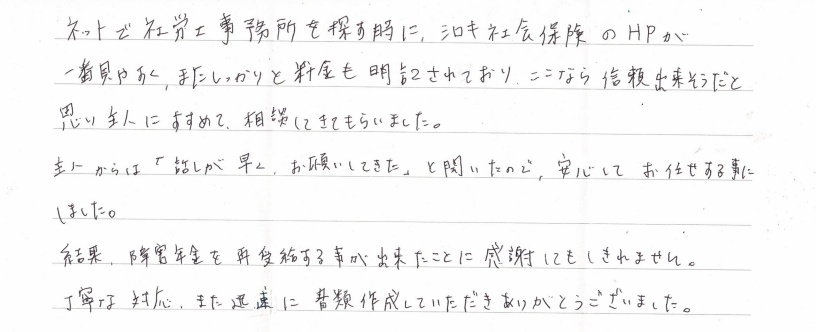 ネットで社労士事務所を探す時に、シロキ社会保険のHPが
一番見やすく、またしっかりと料金も明記されており、ここなら信頼出来そうだと
思い主人にすすめて、相談してきてもらいました。
主人からは「話しが早く、お願いしてきた」と聞いたので、安心してお任せする事に
しました。
結果、障害年金を再受給する事が出来たことに感謝してもしきれません。
丁寧な対応、また迅速に書類作成していただきありがとうございました。